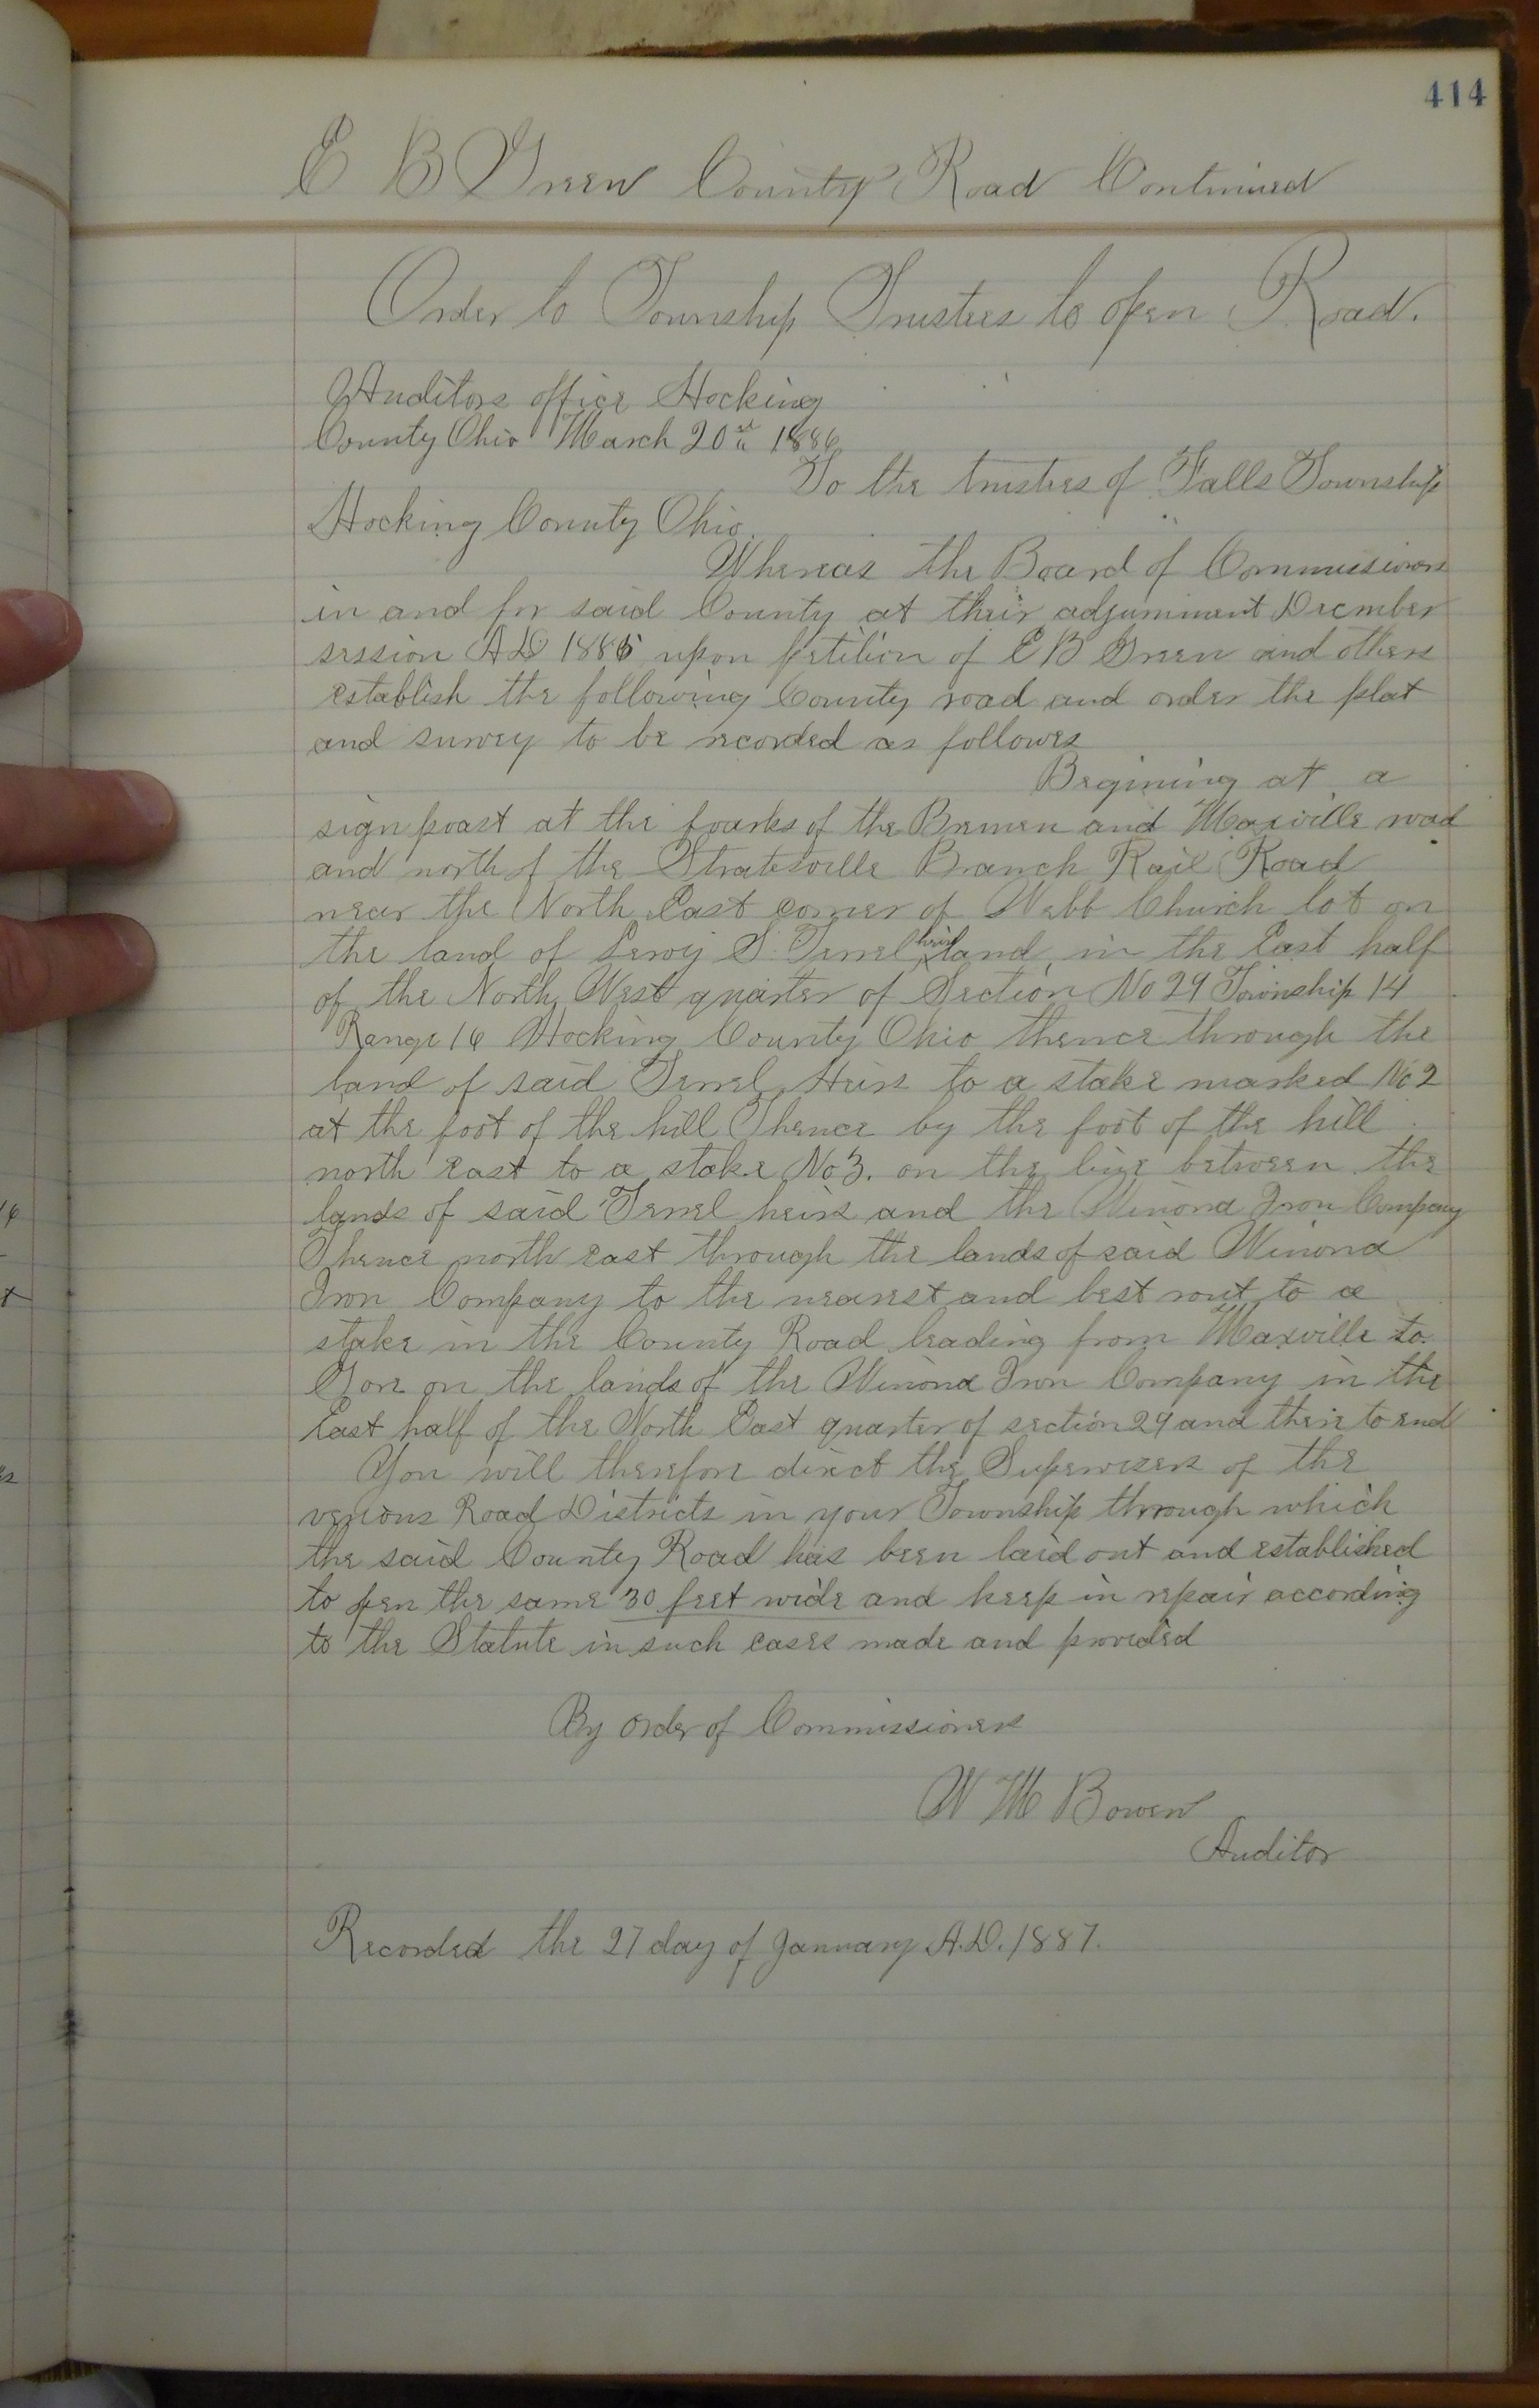 414
E B Green County Road Continued
Order to Township Trustees to open Road.
Auditors office Hocking
County Ohio March 20th 1886
To the trustees of Falls Township
Hocking County Ohio.
Whereas the Board of Commissioners
in and for said County at their adjurnment December
session AD 1885 upon petition of E B Green and others
establish the following County road and order the plat
and survey to be recorded as followes
Begining at a
sign poast at the foarks of the Bremen and Maxville road
and north of the Stratesville Branch Rail Road
near the North East corner of Webb Church lot on
the land of Leroy S. Terrel heirs land in the East half
of the North West quarter of Section No 29 Township 14
Range 16 Hocking County Ohio thence through the
land of said Terrel Heirs to a stake marked No 2
at the foot of the hill Thence by the foot of the hill
north east to a stake No 3. on the line between the
lands of said Terrel heirs and the Winona Iron Company
Thence north east through the lands of said Winona
Iron Company to the nearest and best rout to a
stake in the County Road leading from Maxville to
Gore on the lands of the Winona Iron Company in the
East half of the North East quarter of section 29 and their to end
You will therefore direct the Superviseres of the
verious Road Districts in your Township through which
the said County Road has been laid out and established
to open the same 30 feet wide and keep in repair according
to the Statute in such cases made and provided
By order of Commissioners
W M Bowen
Auditor
Recorded the 27 day of January A.D. 1887.